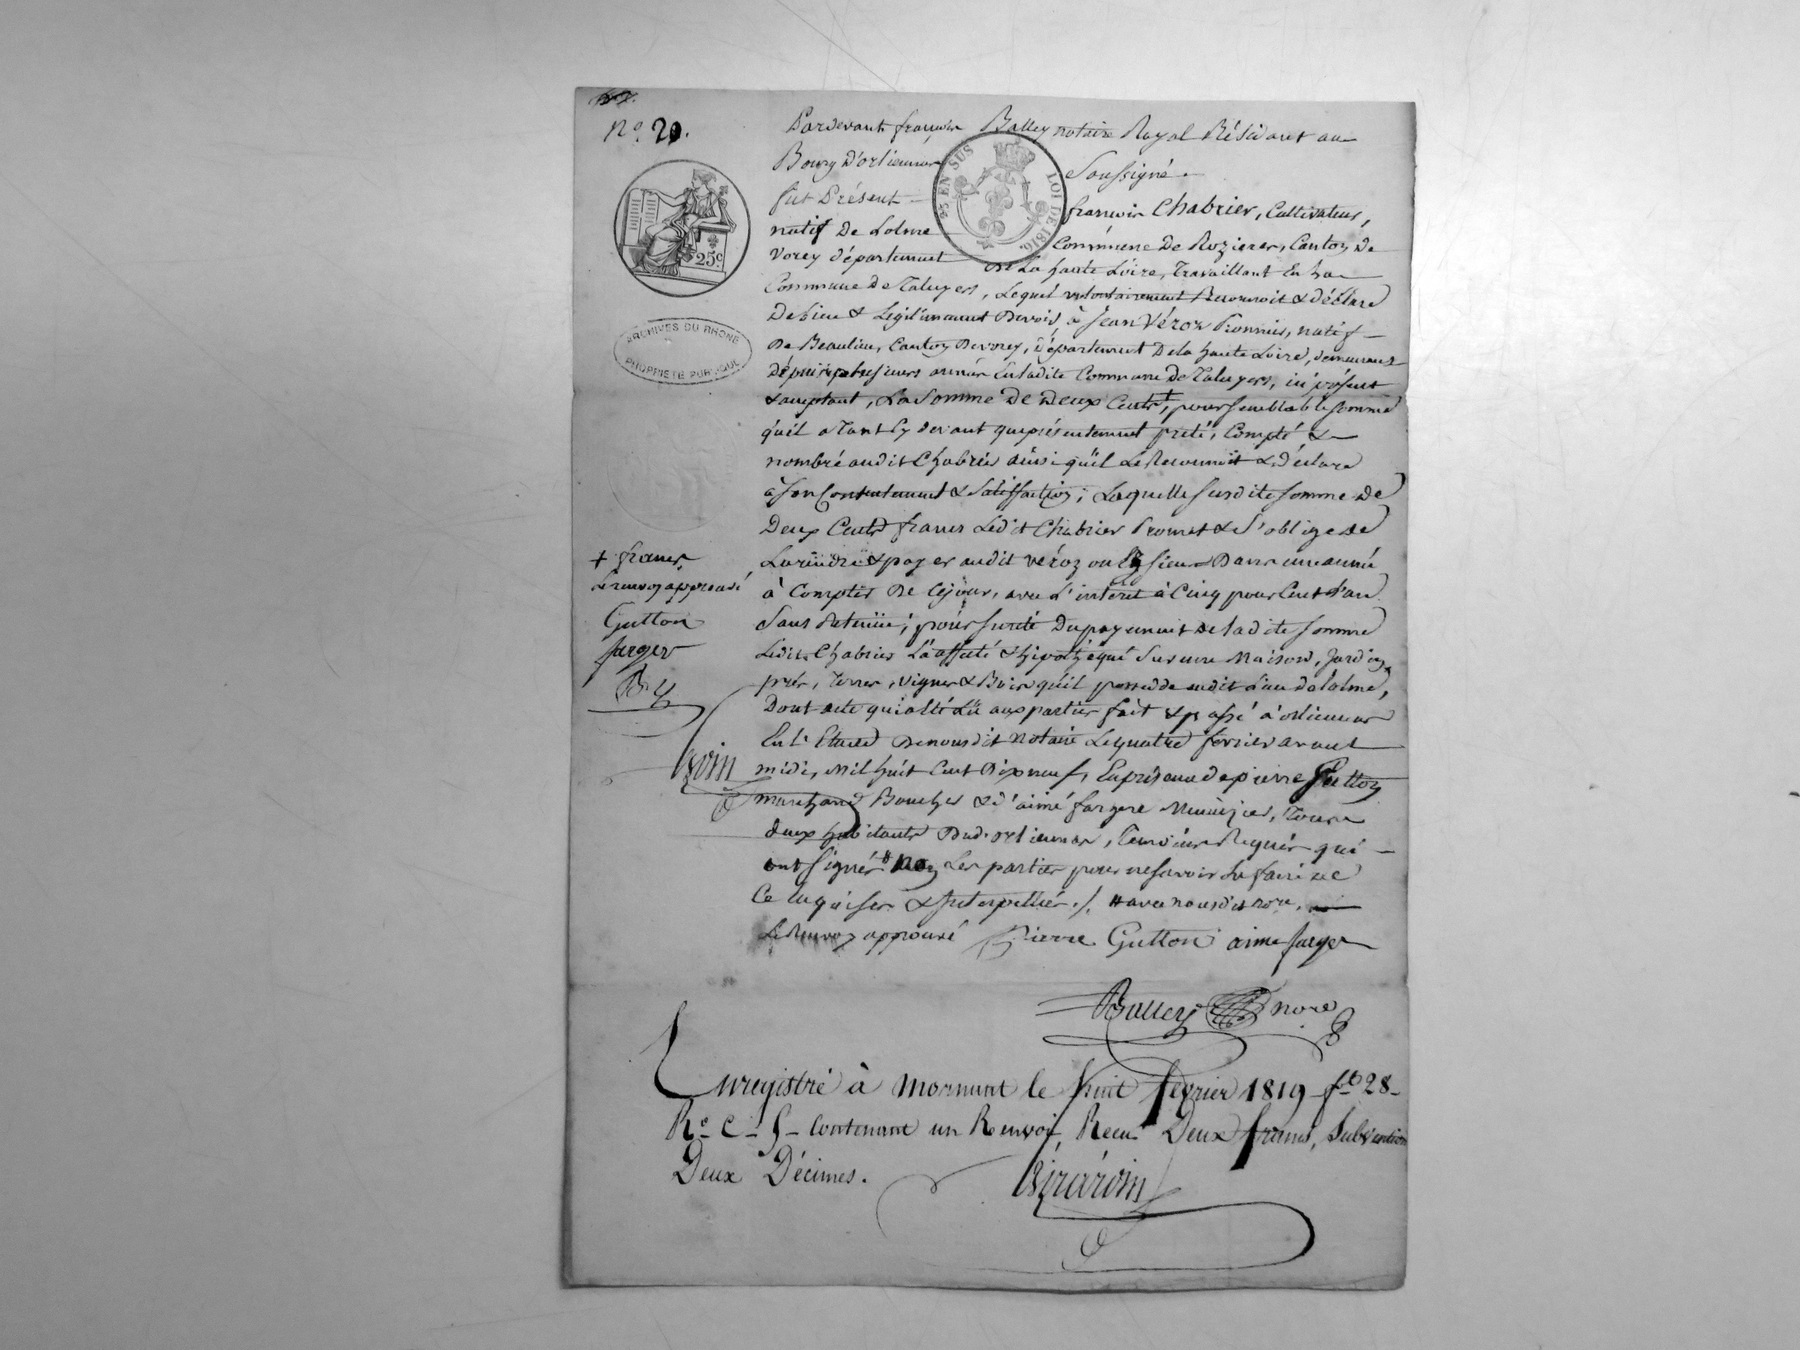 No. 20.
Pardevant françois Balley notaire Royal Résidant au
Bourg D'orliennas soussigné.
fut Présent françois Chabrier, Cultivateur,
natif De Lolme Commune De Rozieres, Canton De
Vorey département De La haute Loire, Travaillant En La
Commune De Taluyers, Lequel volontairement Reconnoit & déclare
De bien & Legitimement Devoir à Jean Véroz Pronnier, natif
De Beaulieu, Canton De vorey, Département De la haute Loire, demeurant
Dépuis plusieurs année En ladite Commune De Taluyers, ici présent
& acceptant, La Somme De Deux Cents +, pour semblable somme
qu'il a Tant Cy devant que présentement prété, Compté &
nombré audit Chabrier ainsi qu'il Le Reconnoit & déclare
à son Contentement & Satisfaction; Laquelle susdite somme De
Deux Cents francs Ledit Chabrier Promet & S'oblige de
La rendre & payer audit véroz ou Es siens Dans une année
à Compter De Cejour, avec L'interet à Cinq pour Cent L'an
Sans Retenue; pour sureté Du payement de ladite somme
Ledit Chabrier L'a affecté & hipothéqué Sur une Maison, Jardin,
prés, Terres, Vignes & Bois qu'il possede audit Lieu de Lolme,
Dont acte qui a été Lu aux parties fait & passé à orliennas
En L'Etude De nousdit Notaire Le quatre fevrier avant
midi, Mil huit Cent Dix neuf, En présence de pierre Gutton
marchand Boucher & d'aimé fargere Menuizier, Tous
deux habitants Dud. orliennas, Temoins Requis qui
ont signés # non Les parties pour ne savoir Le faire de
Ce Enquises & Interpellées ./. # avec nousdit nore.
Le Renvoy approuvé Pierre Gutton aime farger
+ francs
Le renvoy approuvé
Gutton
farger
By
Balley nore
Enregistré à Mornant le huit fevrier 1819 fo 28
Ro C. 5 Contenant un Renvoi, Recu Deux francs, Subvention
Deux Décimes.
Girardin
25 EN SUS
LOI DE 1816
25c
ARCHIVES DU RHONE
PROPRIETE PUBLIQUE